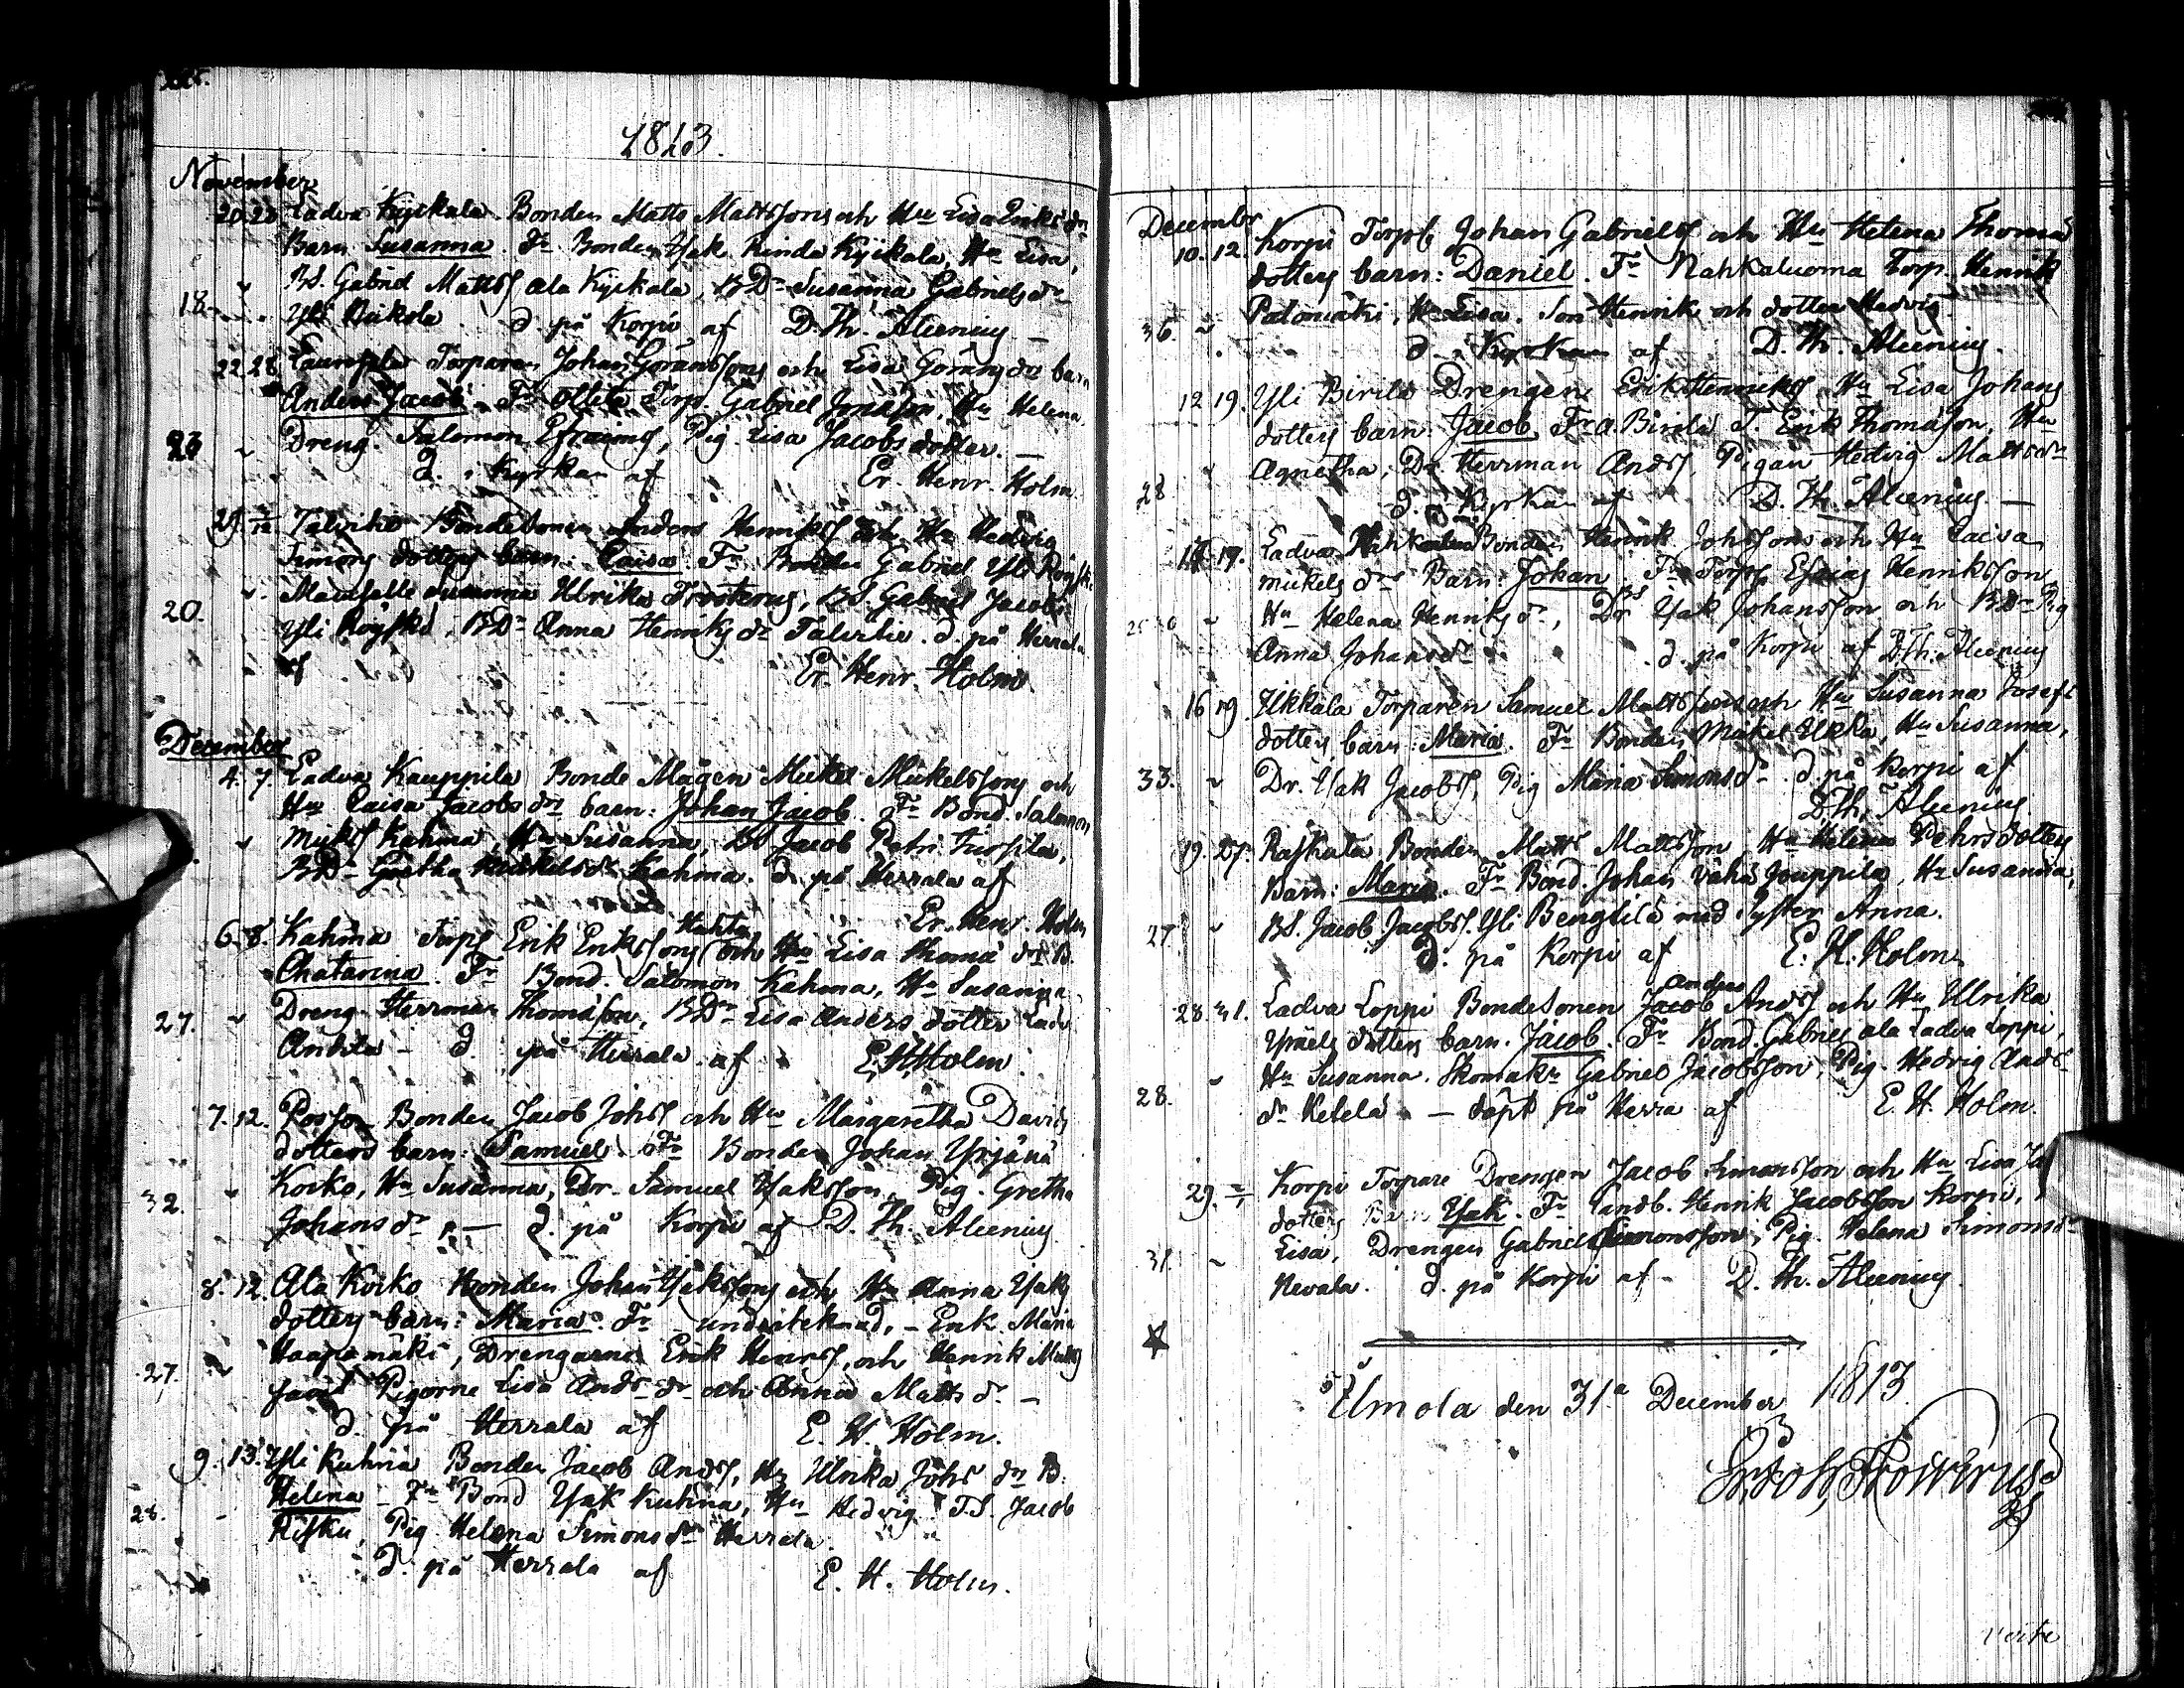 1813.
November
20. 23. Ladva Kyckala Bonden Matts Mattssons och Hu Lisa Eriksdrs
Barn Susanna. Fr Bonden Isak Rinda Kyckala, Hu Lisa,
BS. Gabriel Mattss Ala Kyckala, BDr Susanna Gabrielsdr
18. Yli d. på Korpi af D. Th. Alcenius
22. 28. Torparen Johan Göranssons och Lisa Göransdrs barn
Anders Jacob. Fr Ollila Torp. Gabriel Jonasson, Hu Helena
23 Dreng. Salomon Esaiass, Pig. Lisa Jacobsdotter. —
D. i Kyrkan af Er. Henr. Holm
29. Talvitie Bondesonen Anders Henrikss och Hu Hedvig
Simons dotters barn: Caisa. Fr Bonden Gabriel Yli Röyskö
Mamselle Susanna Ulrika Frosterus, BS. Gabriel Jacobs
20. Yli Röyskö, BDr Anna Henriksdr Talvitie. d. på Herrala
af Er. Henr. Holm
December
4. 7. Ladva Kauppila Bonde Mågen Mickel Mickelssons och
Hus Caisa Jacobsdrs barn: Johan Jacob. Fr Bond. Salomon
Mickss Kahma, Hu Susanna, BS Jacob Petri
BDr Gretha Mickelsdr Kahma. d. på Herrala af
Er. Henr. Holm
Huhta
6. 8. Kahma Torp Erik Erikssons och Hus Lisa Thomædrs B.
Chatarina. Fr Bond. Salomon Kahma, Hu Susanna
Dreng Herrman Thomasson, BDr Lisa Anders dotter Ladv.
27. Anttila — d. på Herrala af E. H. Holm
7. 12. Bonden Jacob Johss och Hu Margaretha Davids
dotters barn: Samuel. Fr Bonden Johan Yrjänä
Koiko, Hu Susanna, Dr. Samuel Isaksson, Pig. Gretha
32. Johansdr — d. på Korpi af D. Th. Alcenius
8. 12. Ala Koiko Bonden Johan Isakssons och Hu Anna Isaks
dotters barn: Maria. Fr underteknad, — Enk. Maria
Haapamäki, Drengarna Erik Henrss, och Henrik Matts
27. samt Pigorne Lisa Andsdr och Anna Mattsdr. —
d. på Herrala af E. H. Holm.
9. 13. Yli Kuhna Bonden Jacob Andss, Hu Ulrika Johsdrs B.
Helena — Fr Bond Isak Kuhna, Hu Hedvig. T.S. Jacob
28. Risku, Pig Helena Simonsdr Herrala.
d. på Herrala af E. H. Holm.
December
10. 12. Korpi Torp. Johan Gabrielss och Hu Helena Thomæ
dotters barn: Daniel. Fr Nahkaluoma Torp. Henrik
36. Palomäki, Hu Lisa. Son Henrik och dotter Hedvig.
d. i Kyrkan af D. Th. Alcenius.
12 19. Yli Birilä Drengen Erik Henrikss, Hu Lisa Johans
dotters barn: Jacob, Fr A. Birilä T. Erik Thomasson, Hu
Agnetha, Dr. Herrman Andss, Pigan Hedvig Mattsdr
28 d. i Kyrkan af D. Th. Alcenius —
17 19. Ladva Bonden Henrik Johssons och Hu Caisa
Mickelsdrs Barn: Johan. Fr Torp Esaias Henriksson
Hu Helena Henriksdr, BS Isak Johansson och BDr Pig
Anna Johansdr d. på Korpi af D. Th. Alcenius
16 19. Ilkkala Torparen Samuel Mattssons och Hus Susanna Josefs
dotters barn: Maria. Fr Bonden Mickel Ilkka, Hu Susanna,
33. Dr. Isak Jacobss, Pig Maria Simonsdr d. på Korpi af
D. Th. Alcenius
19. 27. Bonden Matts Mattsson, Hu Helena Pehrsdotters
Barn: Maria. Fr Bond. Johan Vähä Jouppila, Hu Susanna,
27 BS. Jacob Jacobss Yli Bengtilä med Syster Anna.
d. på Korpi af E. H. Holm
Anders
28. 31. Ladva Loppi Bondesonen Jacob Andss och Hu Ulrika
Israels dotters barn. Jacob. Fr Bond. Gabriel ala Ladva Loppi,
Hu Susanna. Skomak. Gabriel Jacobsson, Pig. Hedvig Ands
28. dr Ketela — döpt på Herra af E. H. Holm.
29. Korpi Torpare Drengen Jacob Simonsson och Hu Lisa
dotters Barn Isak. Fr Landb. Henrik Jacobsson Korpi,
Lisa, Drengen Gabriel Simonsson, Pig. Helena Simonsdr
31. Nevala. d. på Korpi af — D. Th. Alcenius.
Ilmola den 31a December 1813.